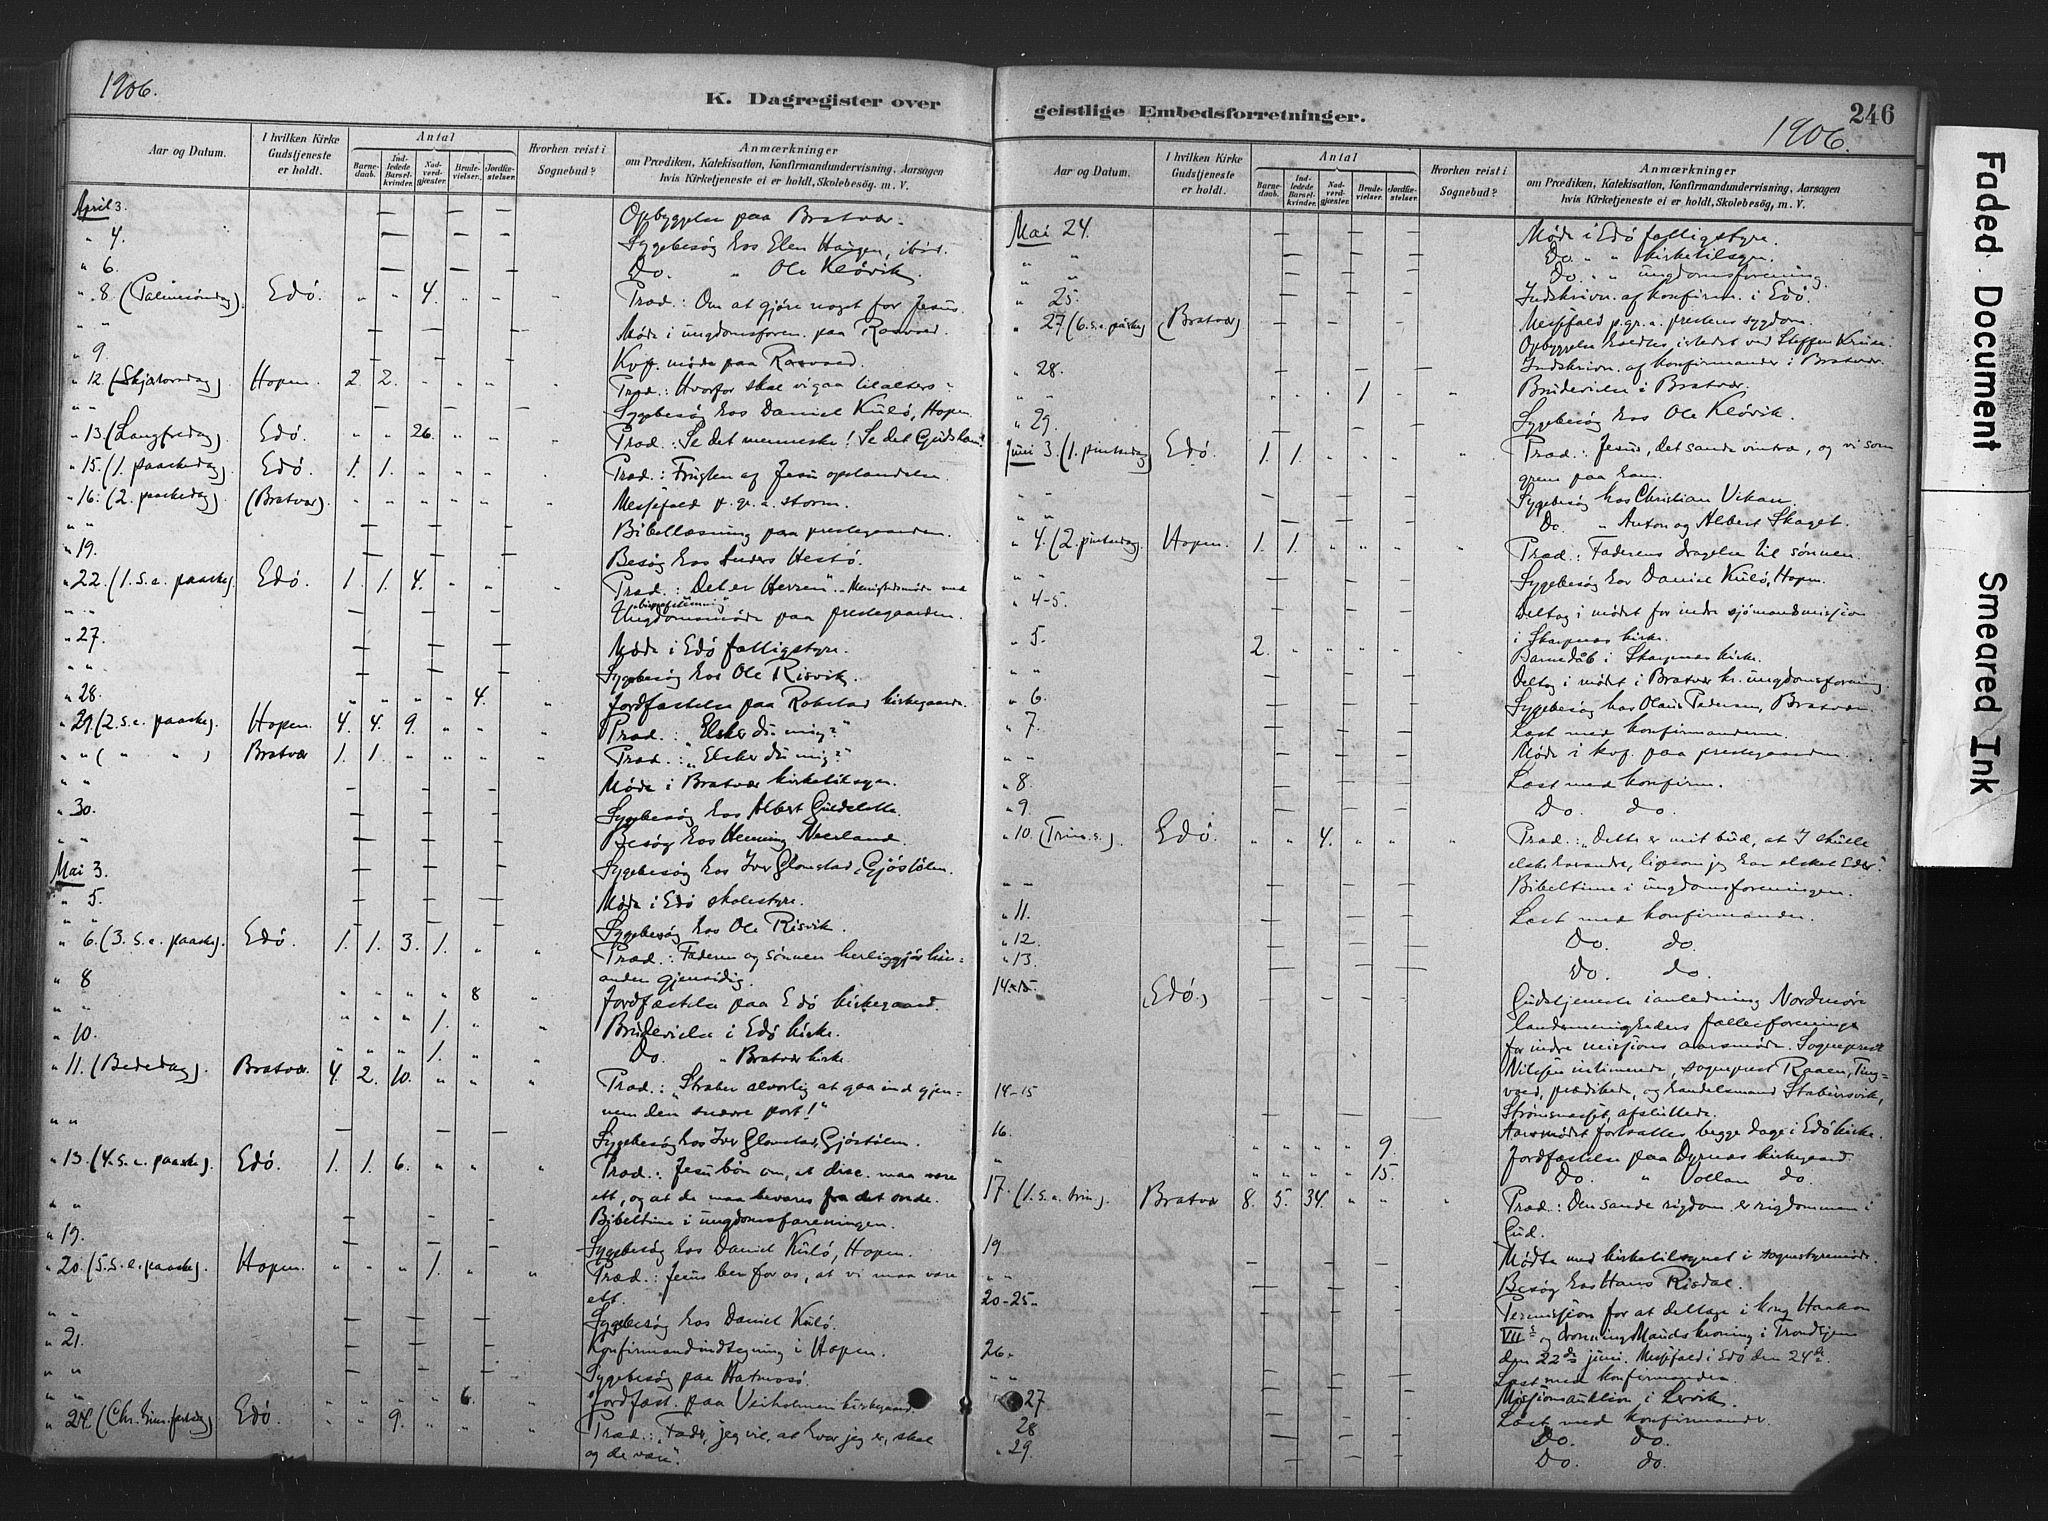 1906.
K. Dagregister over
Aar og Datum. | I hvilken Kirke Gudstjeneste er holdt. | Antal | Barnedaab. | Indledede Barselkvinder. | Nadverdgjester. | Brudevielser. | Jordfæstelser. | Hvorhen reist i Sognebud? | Anmærkninger om Prædiken, Katekisation, Konfirmandundervisning, Aarsagen hvis Kirketjeneste ei er holdt, Skolebesøg. m. V.
April 3. — — — Opbyggelse paa Bratvær.
" 4. — — — Sygebesøg hos Elen Haugen, ibid.
" 6. — — — Do. " Ole Kløvik.
" 8. (Palmesøndag). Edø. " " 4. " " " Præd.: Om at gjøre noget for Jesus.
" " — — — Møde i ungdomsforen. paa Rosvold.
" 9. — — — Kvf. møde paa Rosvold.
" 12 (Skjærtorsdag) Hopen. 2. 2. " " " " Præd.: Hvorfor skal vi gaa til alters.
" " — — — Sygebesøg hos Daniel Kulø, Hopen.
" 13 (Langfredag). Edø. " " 26. " " " Præd.: Se det menneske! Se det Guds lam!
" 15. (1. paaskedag) Edø. 1. 1. " " " " Præd.: Frugten af Jesu opstandelse.
" 16. (2. paaskedag). (Bratvær). " " " " " " Messefald p. gr. a. storm.
" " — — — Bibellæsning paa prestegaarden.
" 19. — — — Besøg hos Anders Hestø.
" 22. (1. s. e. paaske). Edø. 1. 1. 4. " " " Præd.: "Det er Herren". Menighedsmøde med
" " — — — Ungdomsmøde paa prestegaarden.
" 27. — — — Møde i Edø fattigstyre.
" " — — — Sygebesøg hos Ole Risvik.
" 28. " " " " 4. " Jordfæstelse paa Rokstad kirkegaard.
" 29. (2. s. e. paaske). Hopen. 4. 4. 9. " " " Præd.: "Elsker du mig?"
" " ( " " " ) Bratvær 1. 1. " " " " Præd.: "Elsker du mig?"
" " — — — Møde i Bratvær kirketilsyn.
" 30. — — — Sygebesøg hos Albert Guldslette.
" " — — — Besøg hos Henning Neerland.
Mai 3. — — — Sygebesøg hos Iver Glomstad, Gjøstølen.
" 5. — — — Møde i Edø skolestyre.
" " — — — Sygebesøg hos Ole Risvik.
" 6. (3. s. e. paaske). Edø. 1. 1. 3. 1. " " Præd.: Faderen og sønnen herliggjør hin-
anden gjensidig.
" 8 " " " " 8 " Jordfæstelse paa Edø kirkegaard.
" " " " " 1. " " Brudevielse i Edø kirke.
" 10. " " " 1. " " Do. " Bratvær kirke.
" 11. (Bededag). Bratvær. 4. 2. 10. " " " Præd.: "Stræber alvorlig at gaa ind gjen-
nem den snævre port!"
" " — — — Sygebesøg hos Iver Glomstad, Gjøstølen.
" 13. (4. s. e. paaske). Edø. 1. 1. 6. " " " Præd.: Jesu bøn om, at disc. maa være
ett, og at de maa bevares fra det onde.
" " — — — Bibeltime i ungdomsforeningen.
" 19. — — — Sygebesøg hos Daniel Kulø, Hopen.
" 20. (5. s. e. paaske). Hopen. " " " 1. " " Præd.: Jesus ber for os, at vi maa være
ett.
" " — — — Sygebesøg hos Daniel Kulø.
" 21. — — — Konfirmandindtegning i Hopen.
" " — — — Sygebesøg paa Hatmosø.
" " " " " " 6. " Jordfæst. paa Veiholmen kirkegaard.
" 24. (Chr. himmelfartsdag) Edø. " " 9. " " " Præd.: "Fader, jeg vil, at hvor jeg er, skal
og de være".
geistlige Embedsforretninger.
246
1906.
Aar og Datum. | I hvilken Kirke Gudstjeneste er holdt. | Antal | Barnedaab. | Indledede Barselkvinder. | Nadverdgjester. | Brudevielser. | Jordfæstelser. | Hvorhen reist i Sognebud? | Anmærkninger om Prædiken, Katekisation, Konfirmandundervisning, Aarsagen hvis Kirketjeneste ei er holdt, Skolebesøg, m. V.
Mai 24. — — — Møde i Edø fattigstyre.
" " — — — Do. " " kirketilsyn.
" " — — — Do. " " ungdomsforening.
" 25. — — — Indskrivn. af konfirm. i Edø.
" 27 (6. s. e. påske) (Bratvær) — — — Messefald p. gr. a. prestens sygdom.
Opbyggelse holdtes istedet ved Steffen Kruse.
" 28. — — — Indskrivn. af konfirmander i Bratvær.
" " " " " 1 " " Brudevielse i Bratvær.
" 29. — — — Sygebesøg hos Ole Kløvik.
Juni 3. (1. pinsedag) Edø. 1. 1. " " " " Præd.: Jesus, det sande vintræ, og vi som
grene paa ham.
" " — — — Sygebesøg hos Christian Vikan.
" " — — — Do. " Anton og Albert Skaget.
" 4. (2. pinsedag). Hopen. 1. 1. " " " " Præd.: Faderens dragelse til sønnen.
" " — — — Sygebesøg hos Daniel Kulø, Hopen.
" 4-5. — — — Deltag. i mødet for indre sjømandsmission
i Skarpnæs kirke.
" 5. 2. " " " " " Barnedåb i Skarpnæs kirke.
" " — — — Deltag. i mødet i Bratvær kr. ungdomsforening.
" 6. — — — Sygebesøg hos Olaus Pedersen, Bratvær.
" 7. — — — Læst med konfirmanderne.
" " — — — Møde i kvf. paa prestegaarden.
" 8 — — — Læst med konfirm.
" 9. — — — Do. do.
" 10. (Trin. s.) Edø. " " 4. " " " Præd.: "Dette er mit bud, at I skulle
elske hverandre, ligesom jeg har elsket Eder."
" " — — — Bibeltime i ungdomsforeningen.
" 11. — — — Læst med konfirmander.
" 12. — — — Do. do.
" 13. — — — Do. do.
14-15. (Edø) — — — Gudstjeneste i anledning Nordmøre
landsmenigheders fællesforenings
for indre missions aarsmøde. Sogneprest
Nilssen intimerede, sogneprest Raaen, Ting-
vold, prædikede, og handelsmand Stabursvik,
Strømsnæset, afsluttede.
14-15 — — — Aarsmødet fortsattes begge dage i Edø kirke.
16. " " " " 9. " Jordfæstelse paa Dyrnæs kirkegaard.
" " " " " 15. " Do. " Vollan do.
17. (1. s. e. trin.). Bratvær 8. 5. 34. " " " Præd.: Den sande rigdom er rigdommen i
Gud.
19 — — — Mødte med kirketilsynet i sognestyremøde.
" " — — — Besøg hos Hans Risdal.
20-25. — — — Permission for at deltage i kong Haakon
VIIs og dronning Mauds kroning i Trondhjem
den 22de juni. Messefald i Edø den 24de.
26. — — — Læst med konfirmander.
" " — — — Missionsauktion i Lervik.
" 27 — — — Læst med konfirmander.
28 — — — Do. do.
" 29. — — — Do. do.
Faded Document
Smeared Ink